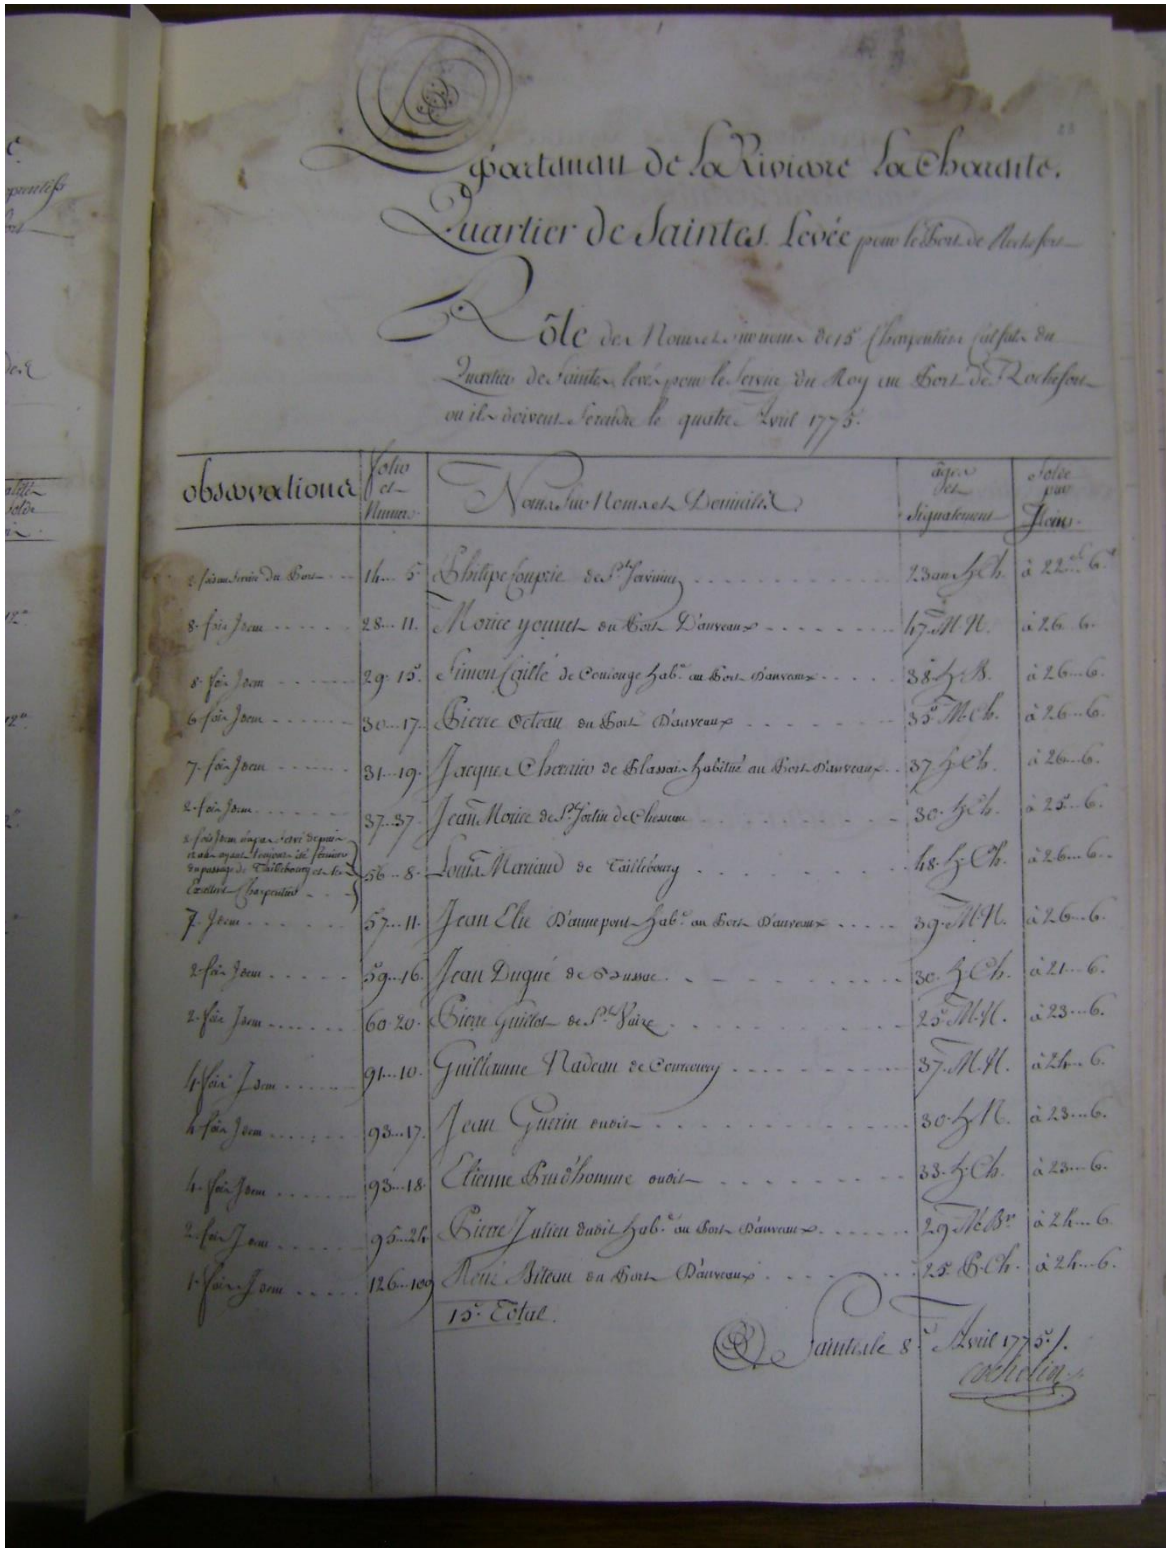 23
Departement de la Riviere la Charente.
Quartier de Saintes. Levée pour le Port de Rochefort
Rôle des Noms et surnoms de 15 Charpentiers Calfats du
Quartier de Saintes levés pour le Service du Roy au Port de Rochefort
ou ils doivent se rendre le quatre Avril 1775.
observations folio et Numero Noms Sur Noms et Domiciles âges et Signalement Solde par Mois
2 fois au Service du Port 14 5 Philipe Couprie de St Savinien 23 ans h. Ch. à 22 6
8. fois Idem 28 11. Morice yonnet du Port D'anveaux 47. M. N. à 26 6.
8. fois Idem 29 15. Simon Caillé de Coulonge hab. au Port D'anveaux 38. h. B. à 26 6.
6. fois Idem 30 17. Pierre Octeau du Port D'anveaux 35. M. Ch. à 26 6.
7. fois Idem 31 19. Jacques Charrier de Plassai habitué au Port D'anveaux 37. h. Ch. à 26 6.
2. fois Idem 37 37. Jean Morice de St 30. h. Ch. à 25 6.
2 fois Idem
toujours été fermier
du passage de Taillebourg et
Excellent Charpentier 56 8. Louis Merciaud de Taillebourg 48. h. Ch. à 26 6.
7. Idem 57 11. Jean Elie D'annepont hab. au Port D'anveaux 39. M. N. à 26 6.
2. fois Idem 59 16. Jean Dugué de 30. h. Ch. à 21 6.
2. fois Idem 60 20. Pierre Guillot de St Vaize 25. M. N. à 23 6.
4. fois Idem 91 10. Guillaume Nadeau de Courcoury 37. M. N. à 24 6.
4. fois Idem 93 17. Jean Guerin dudit 30. h. N. à 23 6.
4. fois Idem 93 18. Etienne Prud'homme dudit 33. h. Ch. à 23 6.
2. fois Idem 95 24 Pierre Julien dudit hab. au Port D'anveaux 29 M. Bn à 24 6
1. fois Idem 126 109 René Biteau du Port D'anveaux 25. B. Ch. à 24 6.
15. Total.
A Saintes le 8. Avril 1775.
Cochelin